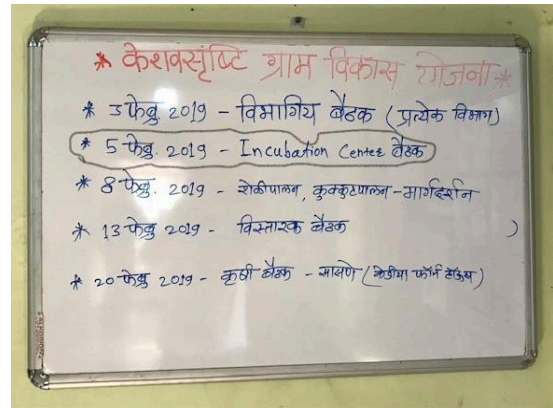 * केशवसृष्टि ग्राम विकास योजना *
* 3 फेब्रु 2019 - विभागिय बैठक (प्रत्येक विभाग)
* 5 फेब्रु. 2019 - Incubation Center बैठक
* 8 फेब्रु. 2019 - शेळीपालन, कुक्कुटपालन - मार्गदर्शन
* 13 फेब्रु 2019 - विस्तारक बैठक )
* 20 फेब्रु 2019 - कृषी बैठक - सापणे ( फॉर्म हाऊस )